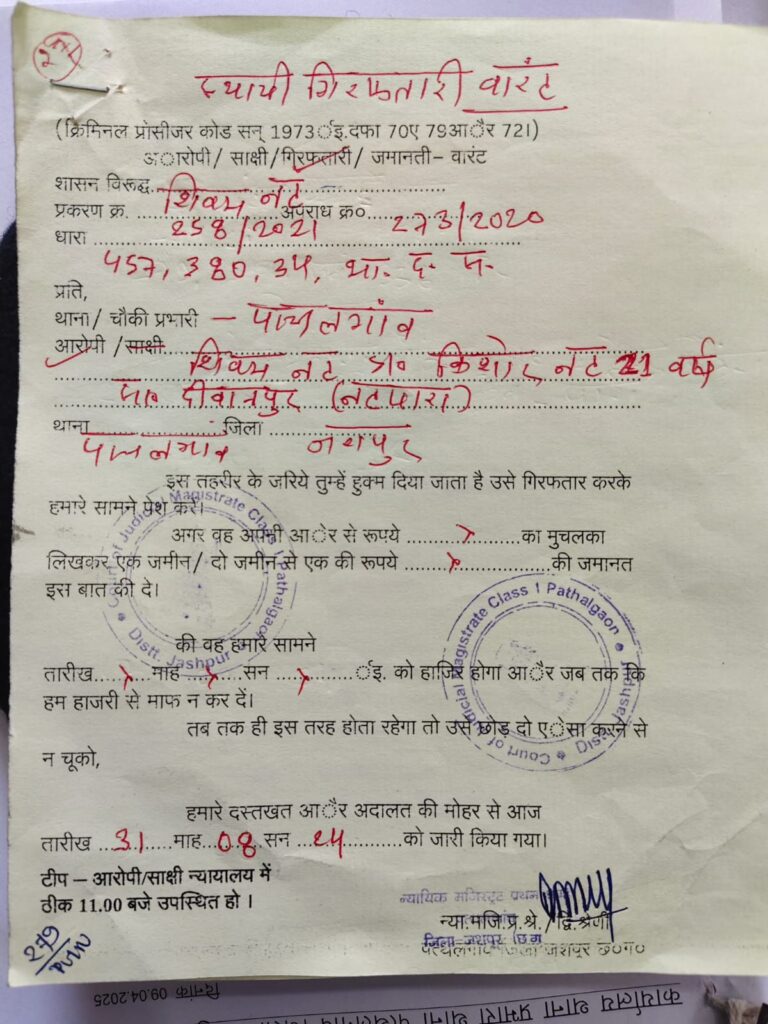 स्थायी गिरफ्तारी वारंट
(क्रिमिनल प्रोसीजर कोड सन् 1973र्इ.दफा 70ए 79आैर 72।)
अारोपी/ साक्षी/गिरफ्तारी/ जमानती– वारंट
शासन विरूद्ध शिवम नट
प्रकरण क्र. 258/2021 अपराध क्र० 273/2020
धारा
457, 380, 34, भा. द. म.
प्रति,
थाना/ चौकी प्रभारी – पत्थलगांव
आरोपी /साक्षी
शिवम नट किशोर नट 21 वर्ष
सा० दीवानपुर (नटपारा)
थाना पत्थलगांव जिला जशपुर
इस तहरीर के जरिये तुम्हें हुक्म दिया जाता है उसे गिरफतार करके
हमारे सामने पेश करें।
अगर वह अपनी आेर से रूपये ..................का मुचलका
लिखकर एक जमीन/ दो जमीन से एक की रूपये ..................की जमानत
इस बात की दे।
की वह हमारे सामने
तारीख.........माह.........सन .........र्इ. को हाजिर होगा आैर जब तक कि
हम हाजरी से माफ न कर दें।
तब तक ही इस तरह होता रहेगा तो उसे छोड़ दो एेसा करने से
न चूको,
हमारे दस्तखत आैर अदालत की मोहर से आज
तारीख 31 माह 08 सन 24 को जारी किया गया।
टीप – आरोपी/साक्षी न्यायालय में
ठीक 11.00 बजे उपस्थित हो ।
न्यायिक मजिस्ट्रट प्रथम
न्या.मजि.प्र.श्रे./ द्वि.श्रेणी
जिला-जशपुर (छ.ग
पत्थलगांव जिला जशपुर छ०ग०
279
Court of Judicial Magistrate Class I Pathalgaon
Distt. Jashpur
Court of Judicial Magistrate Class I Pathalgaon
Distt. Jashpur
कार्यालय थाना प्रभारी थाना पत्थलगांव
दिनांक 09.04.2025